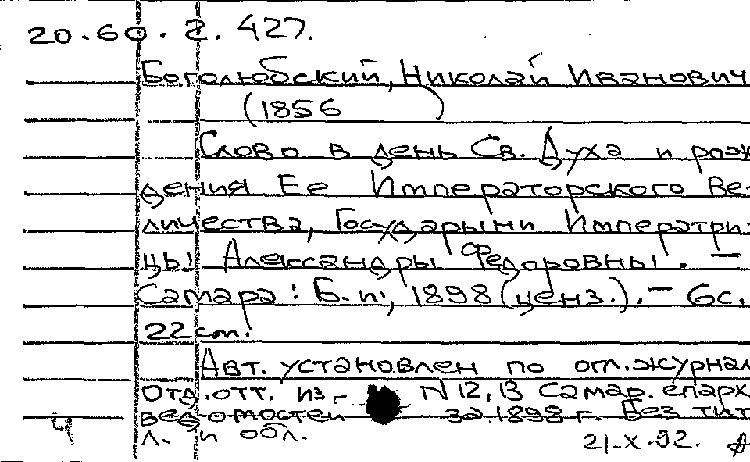 20.60.2.427.
Боголюбский, Николай Иванович
(1856 )
Слово в день Св. Духа и рож-
дения Ее Императорского Ве-
личества, Государыни Императри-
цы Александры Федоровны. —
Самара: Б.и., 1898 (ценз.). — 6с.
22 см.
Авт. установлен по огл. журнал
Отд. отт. из - N 12, 13 Самар. епарх
ведомостей за 1898 г. Без тит
л. и обл.
4 21-X-92.